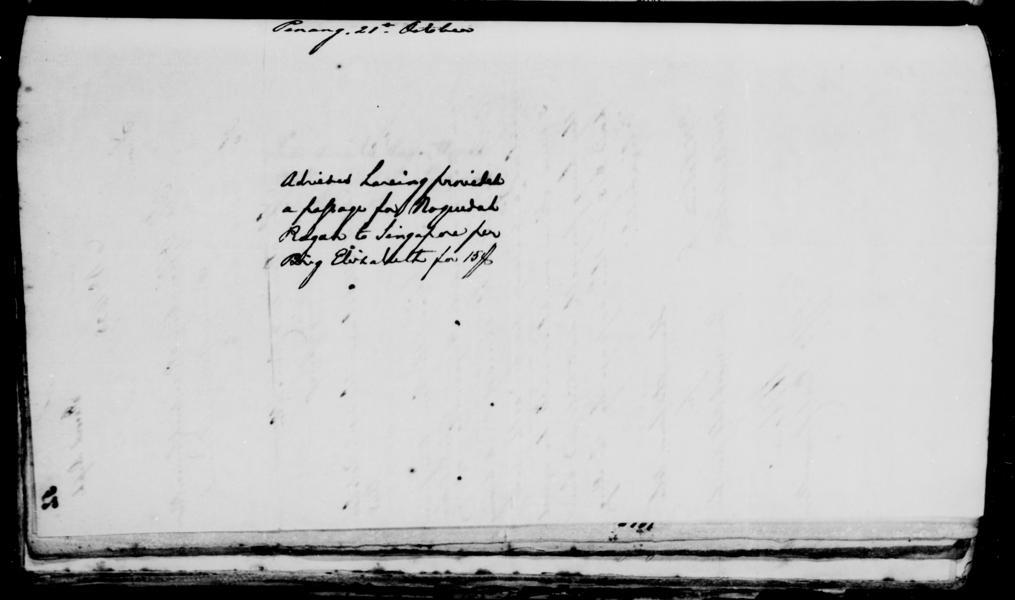 Penang. 21st October
Advises having provided
a passage for Noquedah
Rajah to Singapore per
Brig Elizabeth for 15$